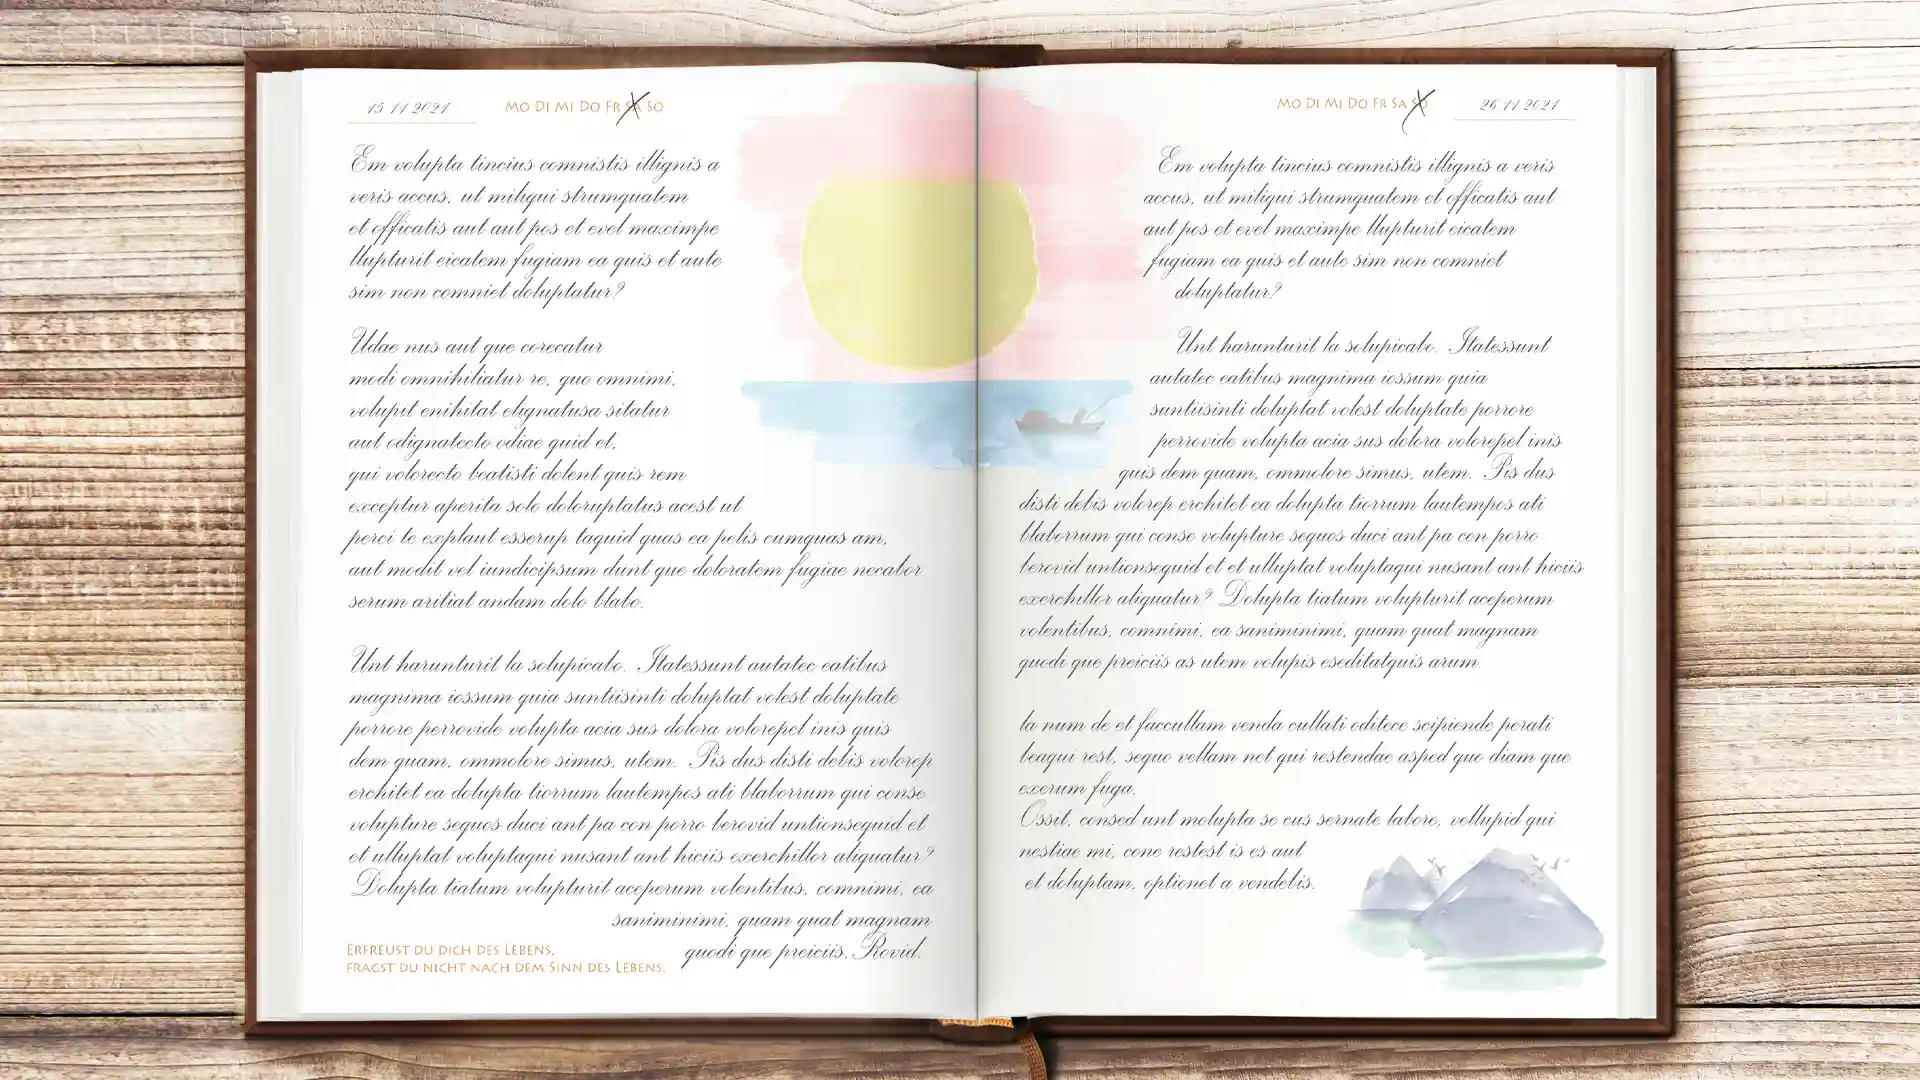 15 11 2021
MO DI MI DO FR SA SO
Em volupta tincius comnistis illignis a
veris accus, ut mitiqui strumquatem
et officatis aut aut pos et evel maximpe
llupturit eicatem fugiam ea quis et aute
sim non comniet doluptatur?
Udae nus aut que corecatur
modi omnihiliatur re, quo omnimi,
volupit enihitat elignatusa sitatur
aut odignatecto odiae quid et,
qui volorecto beatisti dolent quis rem
exceptur aperita solo doloruptatus acest ut
perci te explaut esserup taquid quas ea pelis cumquas am,
aut modit vel iundicipsum dunt que doloratem fugiae necabor
serum aritiat andam dolo blabo.
Unt harunturit la solupicabo. Itatessunt autatec eatibus
magnima iossum quia suntiisinti doluptat volest doluptate
porrore perrovide volupta acia sus dolora volorepel inis quis
dem quam, ommolore simus, utem. Pis dus disti debis volorep
erchitet ea dolupta tiorrum lautempos ati blaborrum qui conse
volupture sequos duci ant pa con porro berovid untionsequid et
et ulluptat voluptaqui nusant ant hiciis exerchillor aliquatur?
Dolupta tiatum volupturit aceperum volentibus, comnimi, ea
saniminimi, quam quat magnam
quodi que preiciis. Rovid.
ERFREUST DU DICH DES LEBENS,
FRAGST DU NICHT NACH DEM SINN DES LEBENS.
MO DI MI DO FR SA SO
26 11 2021
Em volupta tincius comnistis illignis a veris
accus, ut mitiqui strumquatem et officatis aut
aut pos et evel maximpe llupturit eicatem
fugiam ea quis et aute sim non comniet
doluptatur?
Unt harunturit la solupicabo. Itatessunt
autatec eatibus magnima iossum quia
suntiisinti doluptat volest doluptate porrore
perrovide volupta acia sus dolora volorepel inis
quis dem quam, ommolore simus, utem. Pis dus
disti debis volorep erchitet ea dolupta tiorrum lautempos ati
blaborrum qui conse volupture sequos duci ant pa con porro
berovid untionsequid et et ulluptat voluptaqui nusant ant hiciis
exerchillor aliquatur? Dolupta tiatum volupturit aceperum
volentibus, comnimi, ea saniminimi, quam quat magnam
quodi que preiciis as utem volupis eseditatquis arum.
la num de et faccullam venda cullati oditece scipiende perati
beaqui rest, sequo vellam net qui restendae asped quo diam que
exerum fuga.
Ossit, consed unt molupta se cus sernate labore, vellupid qui
nestiae mi, cone restest is es aut
et doluptam, optionet a vendebis.